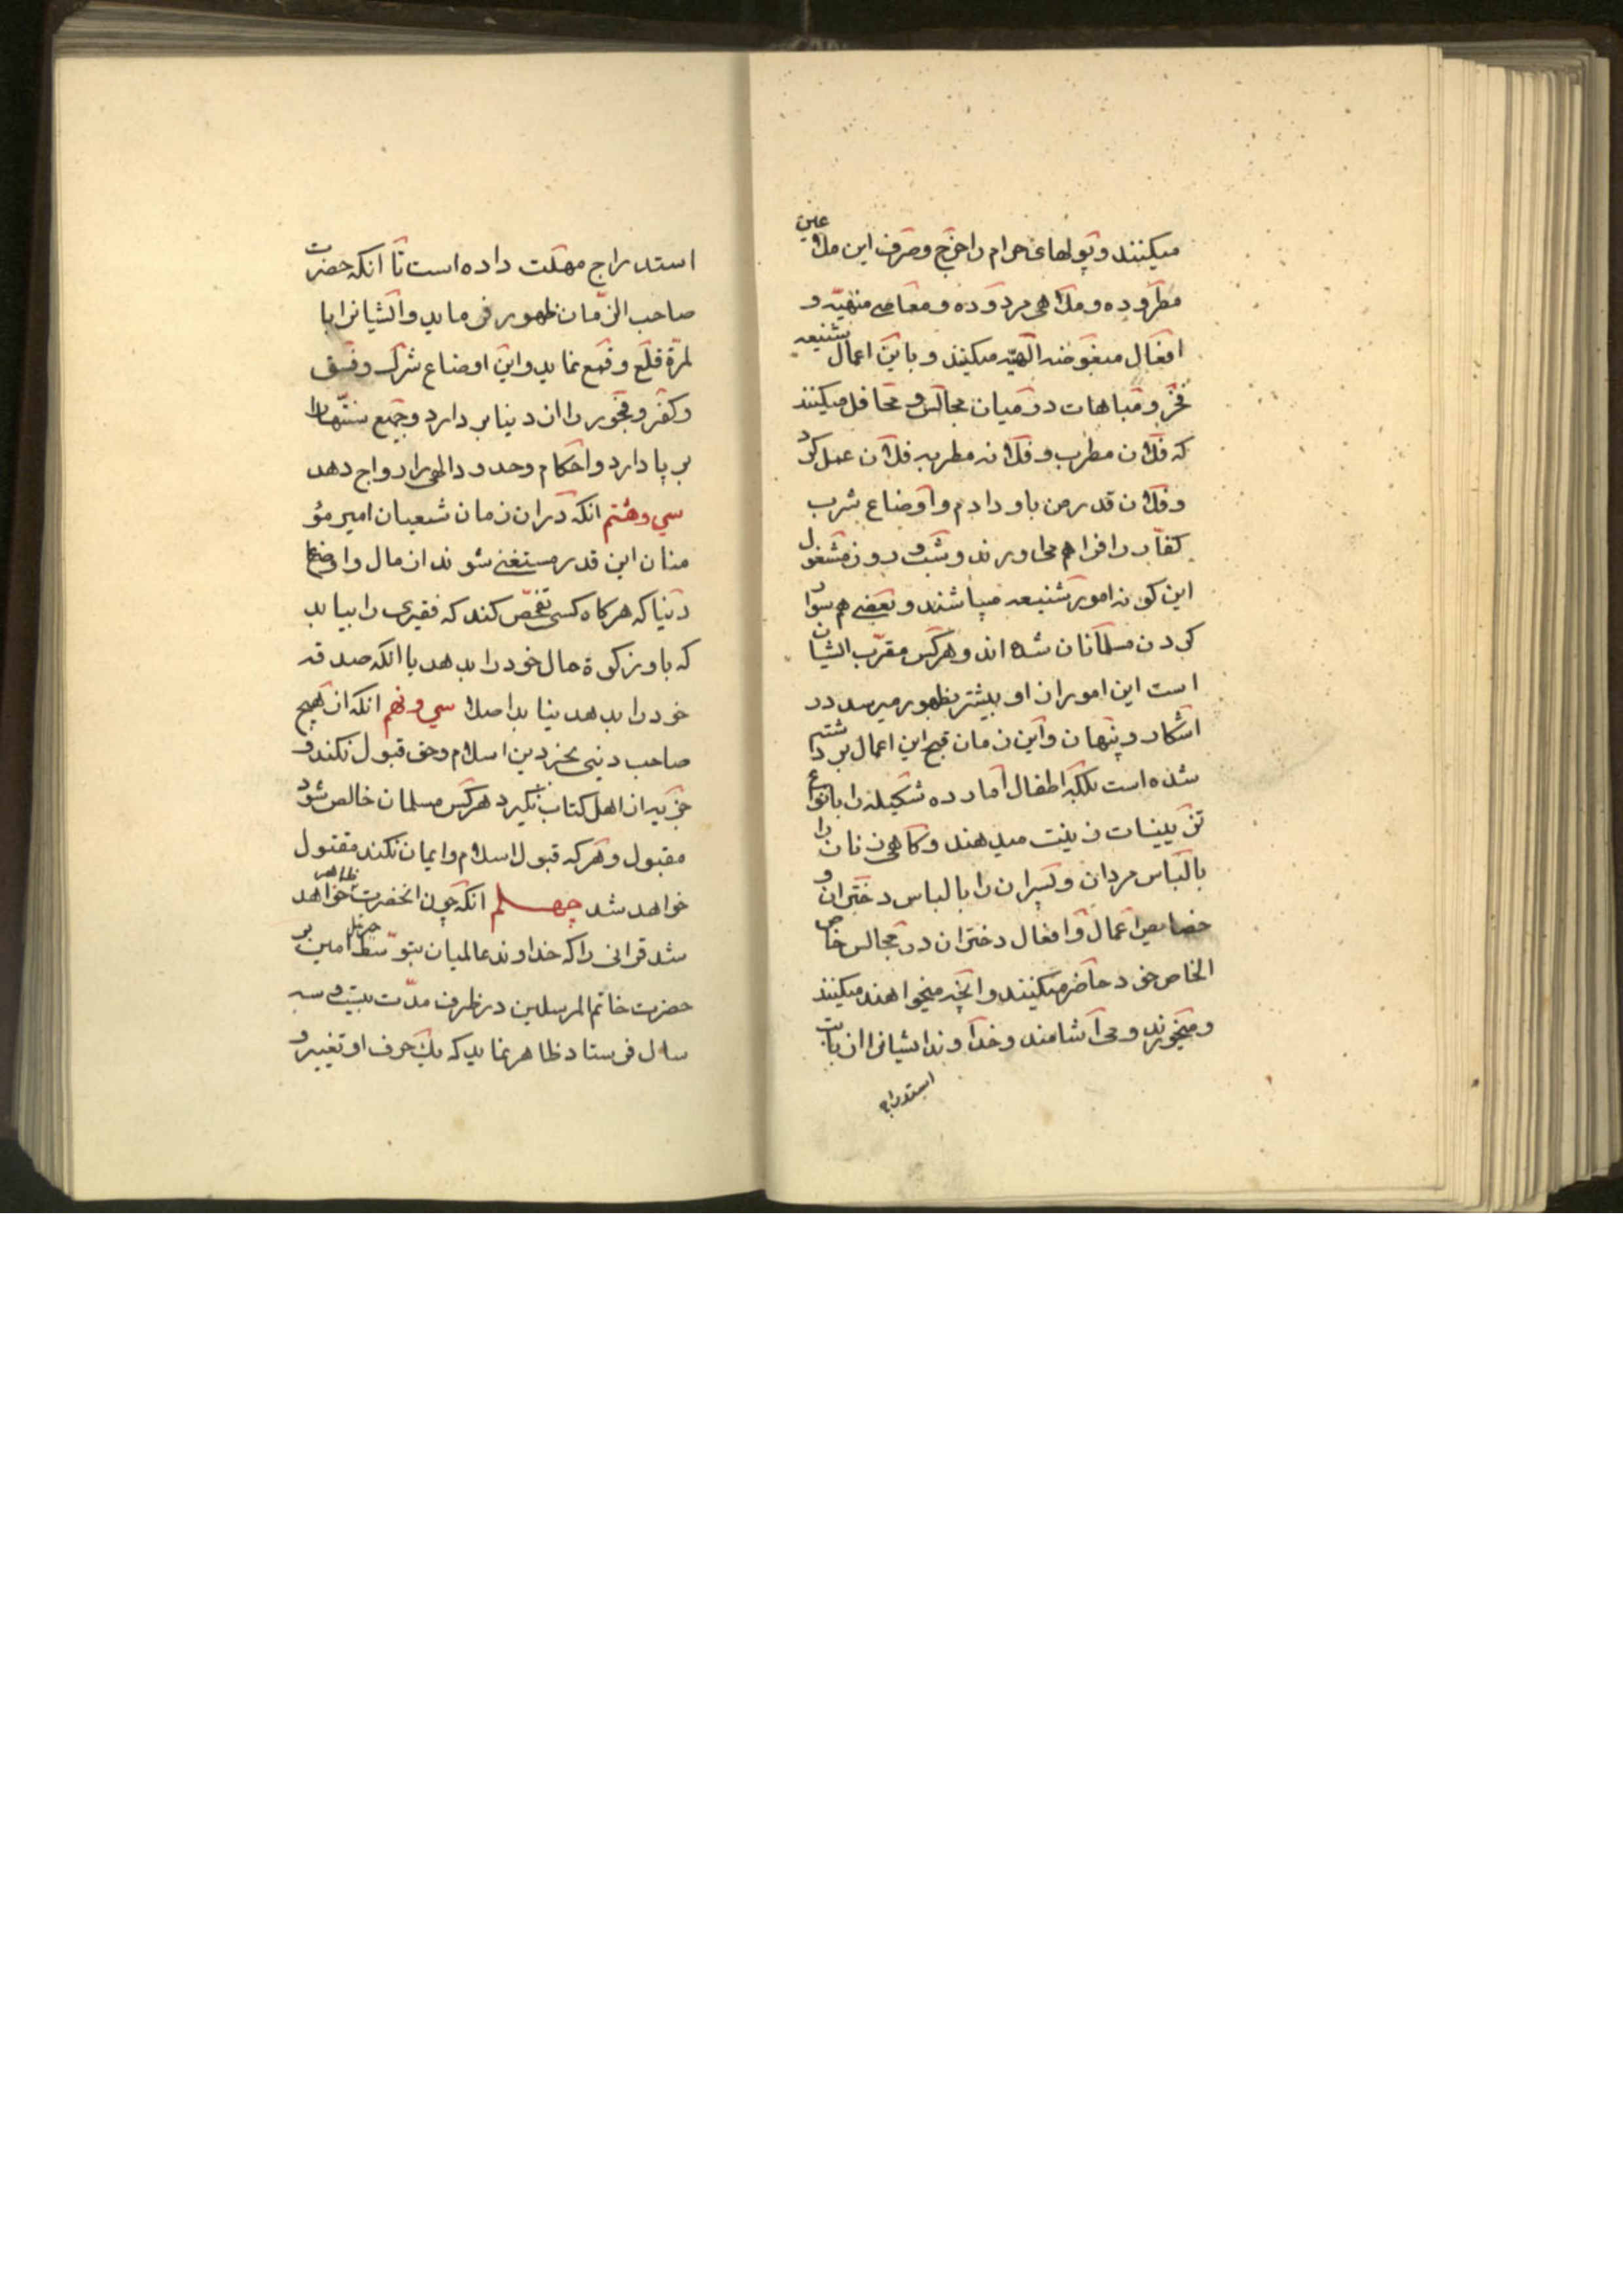 میکنند و پولهای حرام را خرج و صرف این ملاعین
مطروده و ملاهی مردوده و معاصی منهیّه و
افعال مبغوضه الهیّه میکنند و باین اعمال شنیعه
فخر و مباهات در میان مجالس و محافل میکنند
که فلان مطرب و فلانه مطربه فلان عمل کرد
و فلان قدر من باو دادم و اوضاع شرب
کفّار را فراهم می اورند و شب و روز مشغول
این کونه امور شنیعه میباشند و بعضی هم سوا
کردن مسلمانان شده اند و هرکس مقرّب ایشان
است این امور از او بیشتر بظهور میرسد در
اشکار و پنهان و این زمان قبح این اعمال برداشته
شده است بلکه اطفال امارده شکیله را بانواع
تزیینات زینت میدهند و کاهی زنان را
بالباس مردان و پسران را بالباس دختران و
خصایص اعمال و افعال دختران در مجالس خاص
الخاص خود حاضر میکنند و انچه میخواهند میکنند
و میخورند و می اشامند و خداوند ایشانرا از بابت
استدراج
استدراج مهلت داده است تا انکه حضرت
صاحب الزّمان ظهور فرماید و ایشانرا با
لمرّة قلع و قمع نماید و این اوضاع شرک و فسق
و کفر و فجور را از دنیا بر دارد و جمیع سنّتها را
بر پا دارد و احکام و حدود الهی را رواج دهد
سی و هشتم انکه در ان زمان شیعیان امیر مؤ
منان این قدر مستغنی شوند از مال و اوضاع
دنیا که هرکاه کسی تفحّص کند که فقیری را بیابد
که باو زکوة مال خود را بدهد یا انکه صدقه
خود را بدهد نیابد اصلا سی و نهم انکه از هیچ
صاحب دینی بجز دین اسلام و حق قبول نکند و
جزیه از اهل کتاب نکیرد هرکس مسلمان خالص شود
مقبول و هرکه قبول اسلام و ایمان نکند مقتول
خواهد شد چهلم انکه چون انحضرت ظاهر خواهد
شد قرانی را که خداوند عالمیان بتوسّط جبرئیل امین بر
حضرت خاتم المرسلین در ظرف مدّت بیست و سه
سال فرستاد ظاهر نماید که یک حرف او تغییر و